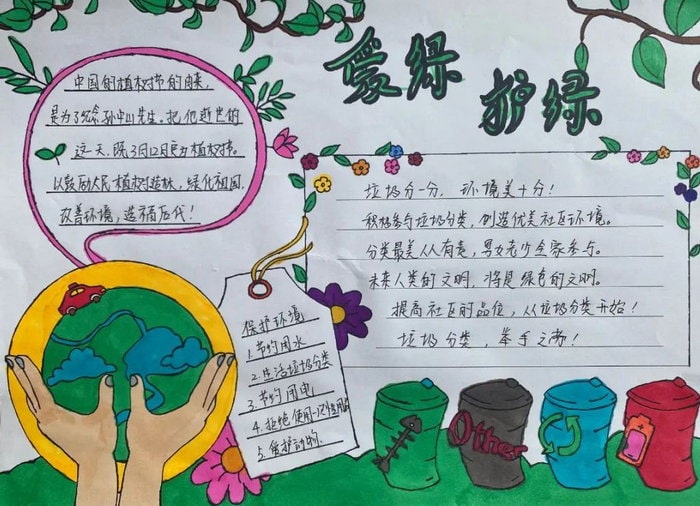 爱绿
护绿
中国的植树节的由来,
是为了纪念孙中山先生。把他逝世的
这一天,既3月12日定为植树节。
以鼓励人民植树造林,绿化祖国,
改善环境,造福后代!
垃圾分一分,环境美十分!
积极参与垃圾分类,创造优美社区环境。
分类最美人人有责,男女老少全家参与。
未来人类的文明,将是绿色的文明。
提高社区的品位,从垃圾分类开始!
垃圾分类,举手之劳!
保护环境
1.节约用水
2.生活垃圾分类
3.节约用电
4.拒绝使用一次性用品
5.爱护动物.
Other